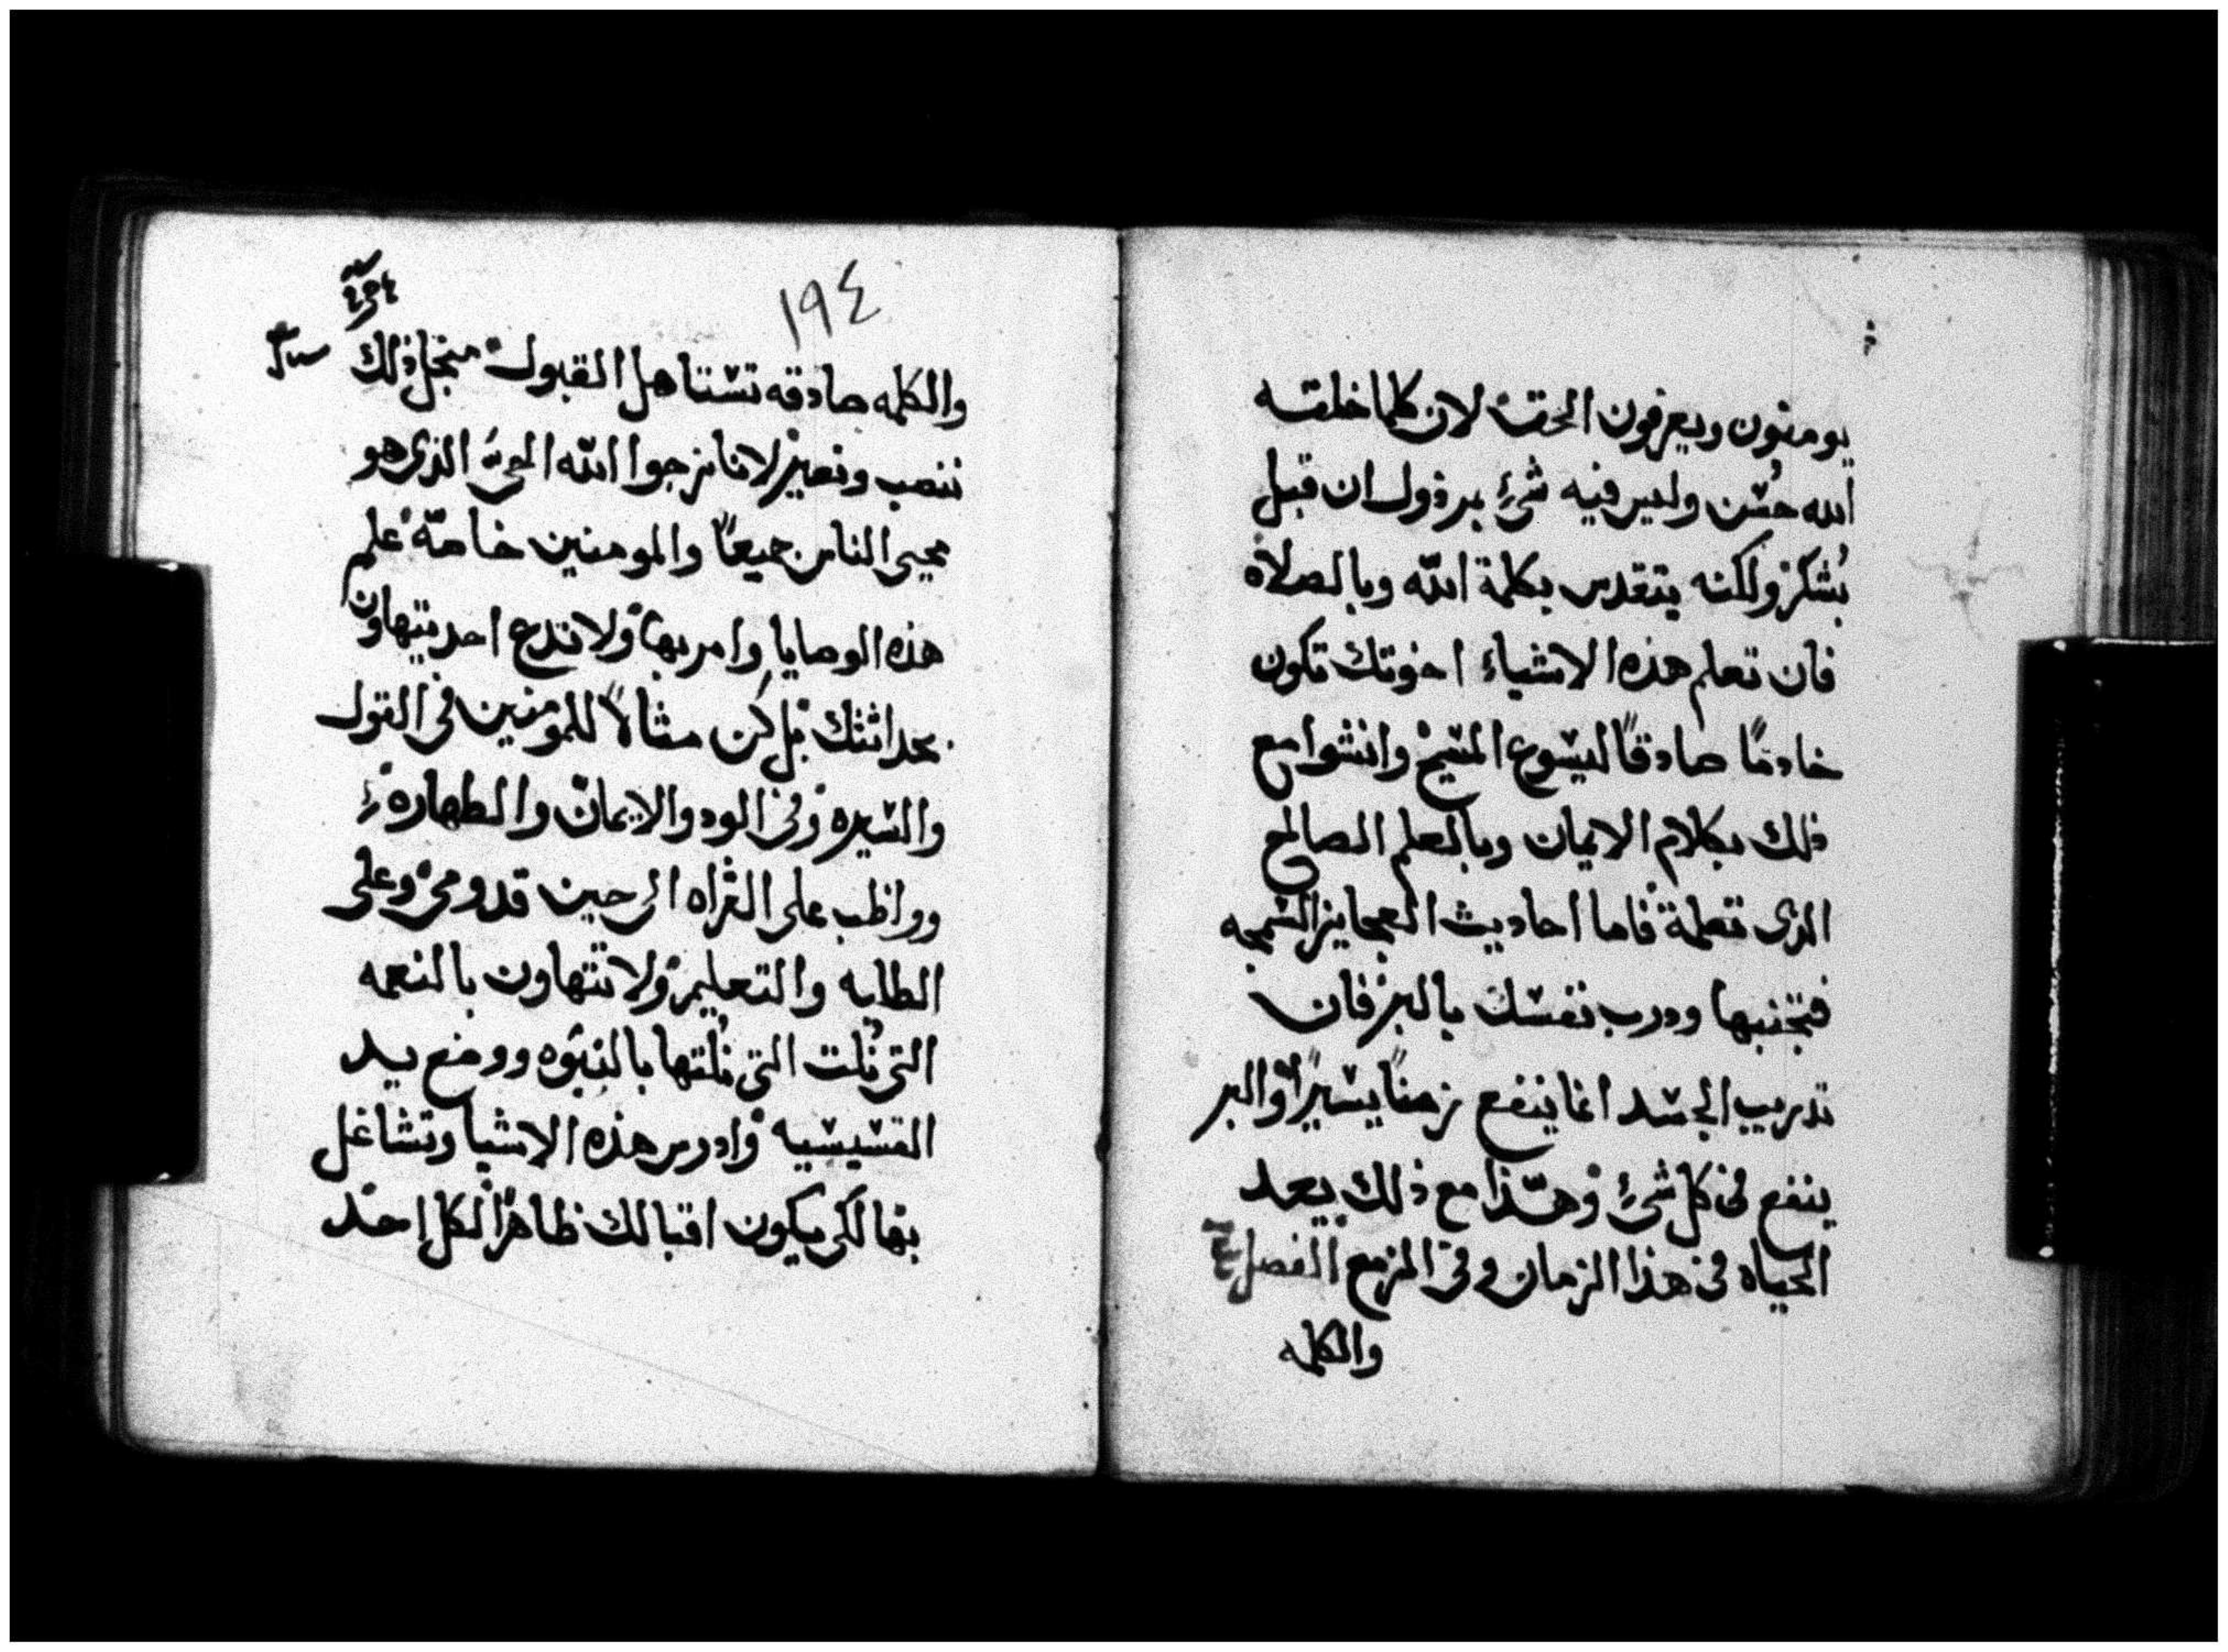 يومنون ويعرفون الحق لان كلما خلقه
الله حسن وليس فيه شئ مرذول ان قبل
بشكر ولكنه يتقدس بكلمة الله وبالصلاة
فان تعلم هذه الاشياء اخوتك تكون
خادمًا صادقًا ليسوع المسيح وانشوا مع
ذلك بكلام الايمان وبالعلم الصالح
الذى تعلمة فاما احاديث العجايز السمجه
فتجنبها ودرب نفسك بالبر فان
تدريب الجسد انما ينفع زمنًا يسيرًا والبر
ينفع فى كل شئ وهذا مع ذلك يعد
الحياه فى هذا الزمان وفى المزمع الفصل
والكلمه
١٩٤
والكلمه صادقه تستاهل القبول منجل ذلك
ننصب ونعير لاننا نرجوا الله الحى الذى هو
محيى الناس جميعًا والمومنين خاصّة علم
هذه الوصايا وامر بها ولا تدع احد يتهاون
بحداثتك بل كن مثالاً للمومنين فى القول
والسيره وفى الود والايمان والطهاره
وواظب على القراه الى حين قدومى وعلى
الطلبه والتعليم ولا تتهاون بالنعمه
التى نُلت التى نُلتها بالنبوه ووضع يد
القسيسيه وادرس هذه الاشيا وتشاغل
بها لكى يكون اقبالك ظاهرًا لكل احد